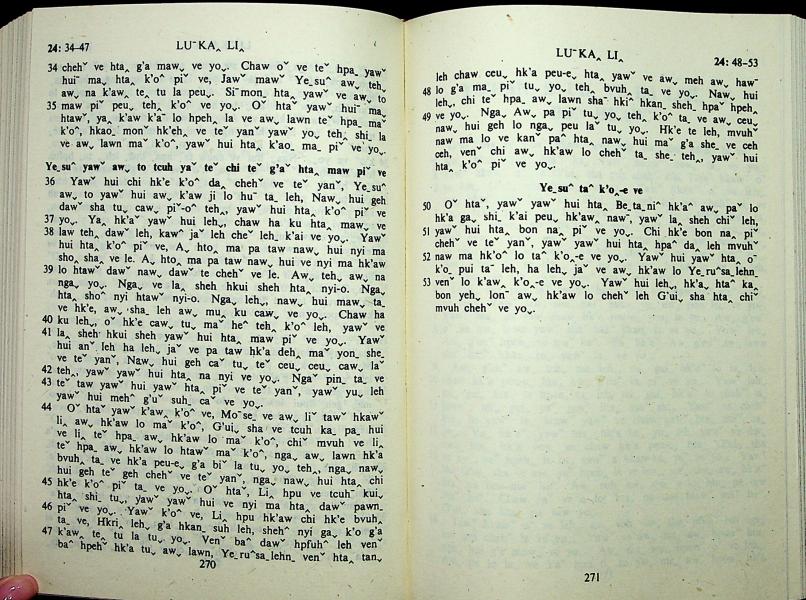 24: 34-47
LUˉ KAꞈ LIꞈ
34 chehˇ ve htaꞈ g'a maw˯ ve yo˯. Chaw oˇ ve teˇ hpaꞈ yawˇ
huiˉ ma˯ htaꞈ k'oˆ piˇ ve, Jawˇ mawˇ Ye_suˆ aw˯ teh˯
aw˯ na k'aw˯ te˯ tu la peu˯. Siˉmon_ htaꞈ yawˇ ve aw˯ to
35 maw piˇ peu˯ tehꞈ k'oˆ ve yo˯. Oˇ htaˇ yawˇ huiˉ ma˯
htawˇ, yaꞈ k'aw kˇaˉ lo hpehꞈ la ve aw˯ lawn teˇ hpaꞈ maˇ
k'oˆ, hkao_ monˇ hk'eh˯ ve teˇ yanˇ yawˇ yo˯ tehꞈ shi_ la
ve aw˯ lawn maˇ k'oˆ, yawˇ hui htaꞈ k'ao_ ma_ piˇ ve yo˯.
Ye_suˆ yawˇ aw˯ to tcuh yaˇ teˇ chi teˇ g'aˇ htaꞈ maw piˇ ve
36 Yawˇ hui chi hk'e k'oˆ daꞈ chehˇ ve teˇ yanˇ, Ye_suˆ
aw˯ to yawˇ hui aw˯ k'aw ji lo huˉ ta_ leh, Naw˯ hui geh
dawˇ sha tu˯ caw˯ piˇ-oˇ tehꞈ, yawˇ hui htaꞈ k'oˆ piˇ ve
37 yo˯. Yaꞈ hk'aˇ yawˇ hui leh˯, chaw ha ku htaꞈ maw˯ ve
38 law tehꞈ dawˇ leh, kawˆ jaˇ leh cheˇ leh_ k'ai ve yo˯. Yawˇ
hui htaꞈ k'oˆ piˇ ve, A˯ htoꞈ ma pa taw naw˯ hui nyi ma
shoꞈ sha˯ ve le. A˯ htoꞈ ma pa taw naw˯ hui ve nyi ma hk'aw
39 lo htawˇ dawˇ naw˯ dawˇ te chehˇ ve le. Aw˯ teh˯ aw˯ na
nga˯ yo˯. Nga˯ ve laꞈ sheh hkui sheh htaꞈ nyi-o. Nga˯
htaꞈ shoˆ nyi htawˇ nyi-o. Nga˯ leh˯, naw˯ hui maw˯ ta_
ve hk'e, aw˯ sha_ leh aw˯ muꞈ ku caw˯ ve yo˯. Chaw ha
40 ku leh˯, oˇ hk'e caw˯ tu˯ maˇ heˆ tehꞈ k'oˆ leh, yawˇ ve
41 laꞈ shehˇ hkui sheh yawˇ hui htaꞈ maw piˇ ve yo˯. Yawˇ
hui anˇ leh ha leh˯ jaˇ ve pa taw hk'a dehꞈ maˇ yon_ she˯
ve teˇ yanˇ, Naw˯ hui geh caˇ tu˯ teˇ ceu˯ ceu˯ caw˯ laˇ
42 tehꞈ, yawˇ yawˇ hui htaꞈ na nyi ve yo˯. Ngaˇ pin_ ta_ ve
43 teˇ taw yawˇ hui yawˇ htaꞈ piˇ ve teˇ yanˇ, yawˇ yu˯ leh
yawˇ hui mehˆ g'uˇ suh_ caˇ ve yo˯.
44 Oˇ htaˇ yawˇ k'aw˯ k'oˆ ve, Mo_seˇ ve aw˯ liˇ tawˇ hkawˇ
liꞈ aw˯ hk'aw lo maˇ k'oˆ, G'ui˯ sha ve tcuh kaꞈ pa_ hui
ve liꞈ teˇ hpaꞈ aw˯ hk'aw lo maˇ k'oˆ, chiˇ mvuh ve liꞈ
teˇ hpaꞈ aw˯ hk'aw lo htawˇ maˇ k'oˆ, nga˯ aw˯ lawn hk'a
bvuhꞈ ta_ ve hk'a peu-e˯ g'a biˇ la tu˯ yo˯ tehꞈ, nga˯ naw˯
hui geh teˇ geh chehˇ ve teˇ yanˇ, nga˯ naw˯ hui htaꞈ chi
45 hk'e k'oˆ piˇ ta_ ve yo˯. Oˇ htaˇ, Liꞈ hpu ve tcuhˉ kui˯
htaꞈ shi_ tu˯, yawˇ yawˇ hui ve nyi ma htaꞈ dawˇ pawn_
46 piˇ ve yo˯. Yawˇ k'oˆ ve, Liꞈ hpu hk'aw chi hk'e bvuhꞈ
ta_ ve, Hkriꞈ leh˯ g'a hkan_ suh leh, shehˆ nyi gaꞈ k'o g'a
47 k'awꞈ te˯ tu la tu˯ yo˯. Venˇ baˆ dawˇ hpfuhˆ leh venˇ
baˆ hpehˇ hk'a tu˯ aw˯ lawn, Ye_ruˆsa_lehn_ venˇ htaꞈ tan˯
270
LUˉ KAꞈ LIꞈ
24: 48-53
leh chaw ceu˯ hk'a peu-e˯ htaꞈ yawˇ ve aw˯ meh aw˯ hawˉ
48 lo g'a ma_ piˇ tu˯ yo˯ tehꞈ bvuhꞈ ta_ ve yo˯. Naw˯ hui
leh˯, chi teˇ hpaꞈ aw˯ lawn shaˉ hkiˆ hkan_ sheh_ hpaˇ hpehꞈ
49 ve yo˯. Nga˯ Aw˯ pa piˇ tu˯ yo˯ tehꞈ k'oˆ ta_ ve aw˯ ceu˯
naw˯ hui geh lo nga˯ peu laˇ tu˯ yo˯. Hk'e te leh, mvuhˇ
naw ma lo ve kanˇ paˆ htaꞈ naw˯ hui maˇ g'a she˯ ve ceh
ceh, venˇ chi aw˯ hk'aw lo chehˇ ta_ she˯ tehꞈ, yawˇ hui
htaꞈ k'oˆ piˇ ve yo˯.
Ye_suˆ taˆ k'oꞈ-e ve
50 Oˇ htaˇ, yawˇ yawˇ hui htaꞈ Be_ta_niˆ hk'aˆ aw˯ paˇ lo
hk'a ga˯ shi_ k'ai peu˯ hk'aw˯ nawˉ, yawˇ laꞈ sheh chiˇ leh,
51 yawˇ hui htaꞈ bon na˯ piˇ ve yo˯. Chi hk'e bon na˯ piˇ
chehˇ ve teˇ yanˇ, yawˇ yawˇ hui htaꞈ hpaˆ daꞈ leh mvuhˇ
52 naw ma hk'oˆ lo taˆ k'oꞈ-e ve yo˯. Yawˇ hui yawˇ htaꞈ oˉ
k'oꞈ pui taˇ leh, ha leh˯ jaˇ ve aw˯ hk'aw lo Ye_ruˆsa_lehn_
53 venˇ lo k'awꞈ k'oꞈ-e ve yo˯. Yawˇ hui leh˯, hk'a˯ htaˆ kaꞈ
bon yeh˯ lonˉ aw˯ hk'aw lo chehˇ leh G'ui˯ sha htaꞈ chiˇ
mvuh chehˇ ve yo˯.
271